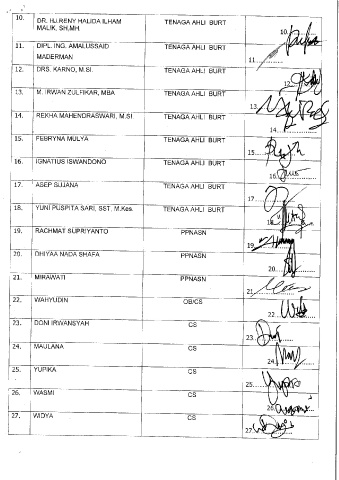 10. DR. HJ.RENY HALIDA ILHAM TENAGA AHLI BURT 10.
MALIK, SH,MH.
11. DIPL. ING. AMALUSSAID TENAGA AHLI BURT 11
MADERMAN
12. DRS. KARNO, M.SI. TENAGA AHLI BURT 12
13. M. IRWAN ZULFIKAR, MBA TENAGA AHLI BURT 13.
14. REKHA MAHENDRASWARI, M.SI TENAGA AHLI BURT 14
15. FEBRYNA MULYA TENAGA AHLI BURT 15
16. IGNATIUS ISWANDONO TENAGA AHLI BURT 16
17. ASEP SUJANA TENAGA AHLI BURT 17
18. YUNI PUSPITA SARI, SST, M.Kes. TENAGA AHLI BURT 18
19. RACHMAT SUPRIYANTO PPNASN 19
20. DHIYAA NADA SHAFA PPNASN 20
21. MIRAWATI PPNASN 21
22. WAHYUDIN OB/CS 22
23. DONI IRWANSYAH CS 23
24. MAULANA CS 24
25. YUPIKA CS 25
26. WASMI CS 26
27. WIDYA CS 27